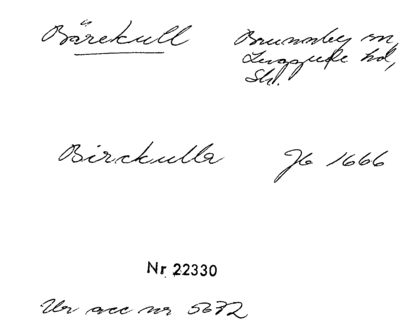 Bärekull Brunnby sn,
Luggude hd,
Sk.
Birckulla Jb 1666
Nr 22330
Ur acc nr 5632